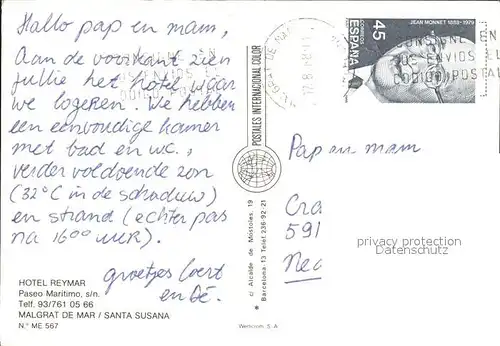 Hallo pap en mam,
Aan de voorkant zien
jullie het hotel waar
we logeren. We hebben
een eenvoudige kamer
met bad en w.c.,
verder voldoende zon
(32°C in de schaduw)
en strand (echter pas
na 16⁰⁰ uur).
groetjes
en
HOTEL REYMAR
Paseo Marítimo, s/n.
Telf. 93/761 05 66
MALGRAT DE MAR / SANTA SUSANA
N.º ME 567
POSTALES INTERNACIONAL COLOR
c/ Alcalde de Móstoles, 19
Barcelona-13 Telef. 236-92-21
JEAN MONNET 1888-1979
45
ESPAÑA
CORREOS
CONSIGNE EN
SUS ENVIOS EL
CODIGO POSTAL
Pap en mam
Cra
591
Nec
privacy protection
Datenschutz